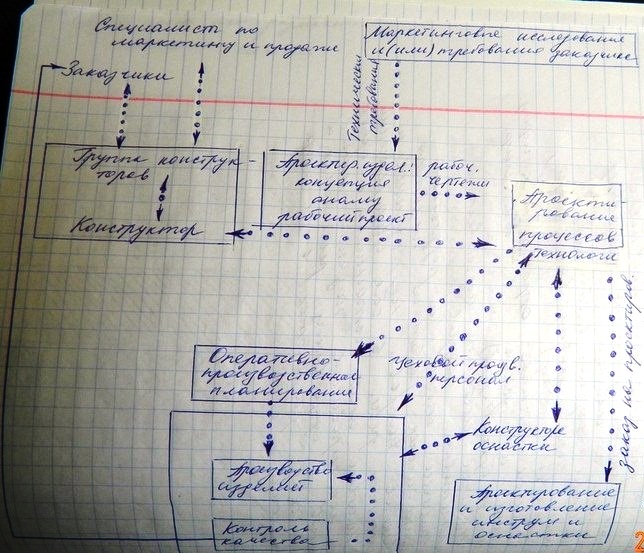 Специалисты по
маркетингу и продаже
Маркетинговые исследования
и (или) требования заказчика
Заказчики
Технические
требования
Группа конструк-
торов
Конструктор
Проектир. издел.:
концепция
анализ
рабочий проект
рабоч.
чертежи
Проекти-
рование
процессов
Технологи
Оперативно-
производственное
планирование
Цеховой произв.
персонал
заказ на проектиров.
Конструкторы
оснастки
Производство
изделий
Проектирование
и изготовление
инструм и
оснастки
Контроль
качества
2